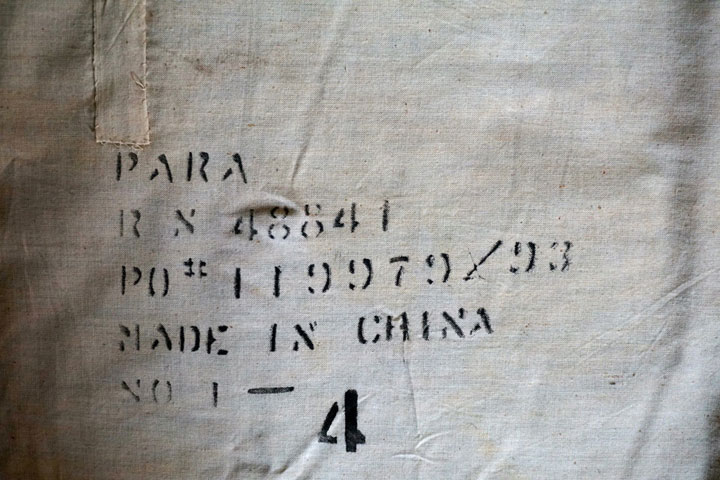 PARA
RN 48841
PO#119979/93
MADE IN CHINA
NO 1-4